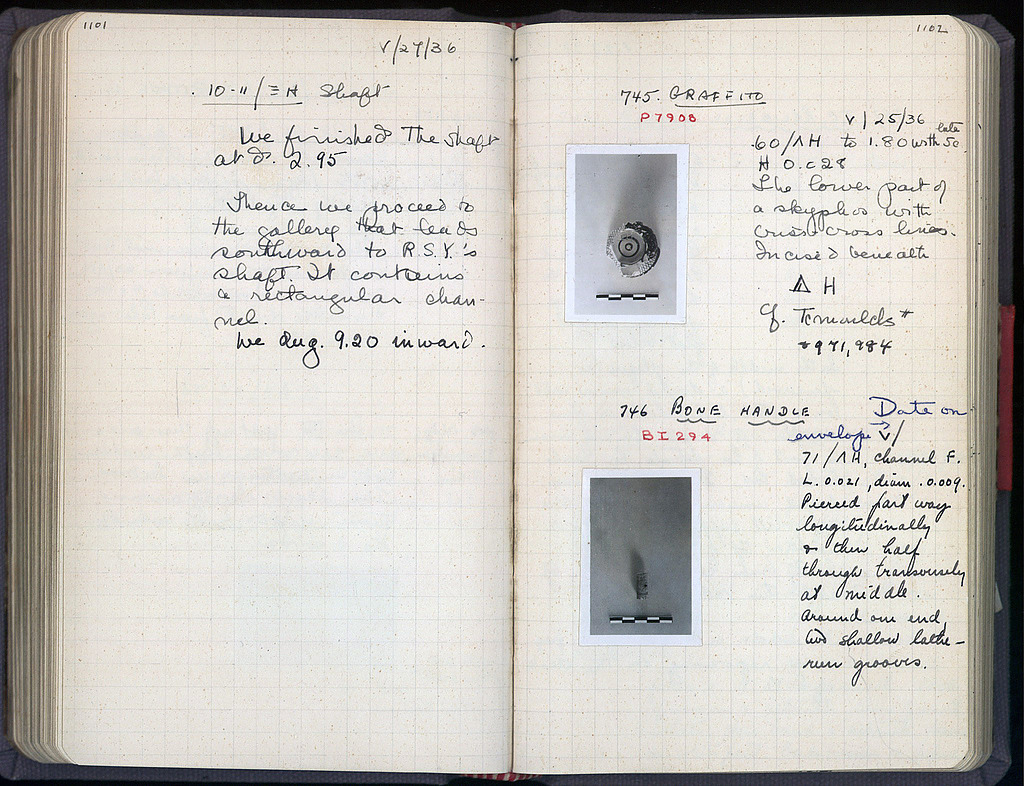 1101
V/27/36
10-11/ΞH Shaft
We finished the shaft
at d. 2.95
Thence we proceed to
the gallery that leads
southward to R.S.Y.'s
shaft. It contains
a rectangular chan-
nel.
We dug. 9.20 inward.
1102
745. GRAFFITO
P 7908
V/25/36
.60/ΛH to 1.80 with late 5c.
H 0.028
The lower part of
a skyphos with
criss-cross lines.
Incised beneath
H
Cf.
971, 984
746 BONE HANDLE
BI 294
Date on
envelope → V/
71/ΛH, channel F.
L. 0.021, diam. 0.009.
Pierced part way
longitudinally
& then half
through transversely
at middle.
Around one end,
two shallow lathe-
run grooves.